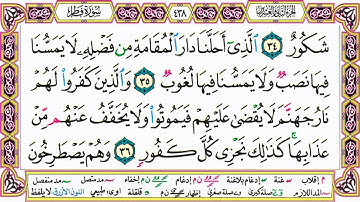 الجزء الثاني والعشرون ٤٣٨ سورة فاطر
شَكُورٌ ٣٤ الَّذِي أَحَلَّنَا دَارَ الْمُقَامَةِ مِن فَضْلِهِ لَا يَمَسُّنَا
فِيهَا نَصَبٌ وَلَا يَمَسُّنَا فِيهَا لُغُوبٌ ٣٥ وَالَّذِينَ كَفَرُوا لَهُمْ
نَارُ جَهَنَّمَ لَا يُقْضَىٰ عَلَيْهِمْ فَيَمُوتُوا وَلَا يُخَفَّفُ عَنْهُم مِّنْ
عَذَابِهَا كَذَٰلِكَ نَجْزِي كُلَّ كَفُورٍ ٣٦ وَهُمْ يَصْطَرِخُونَ